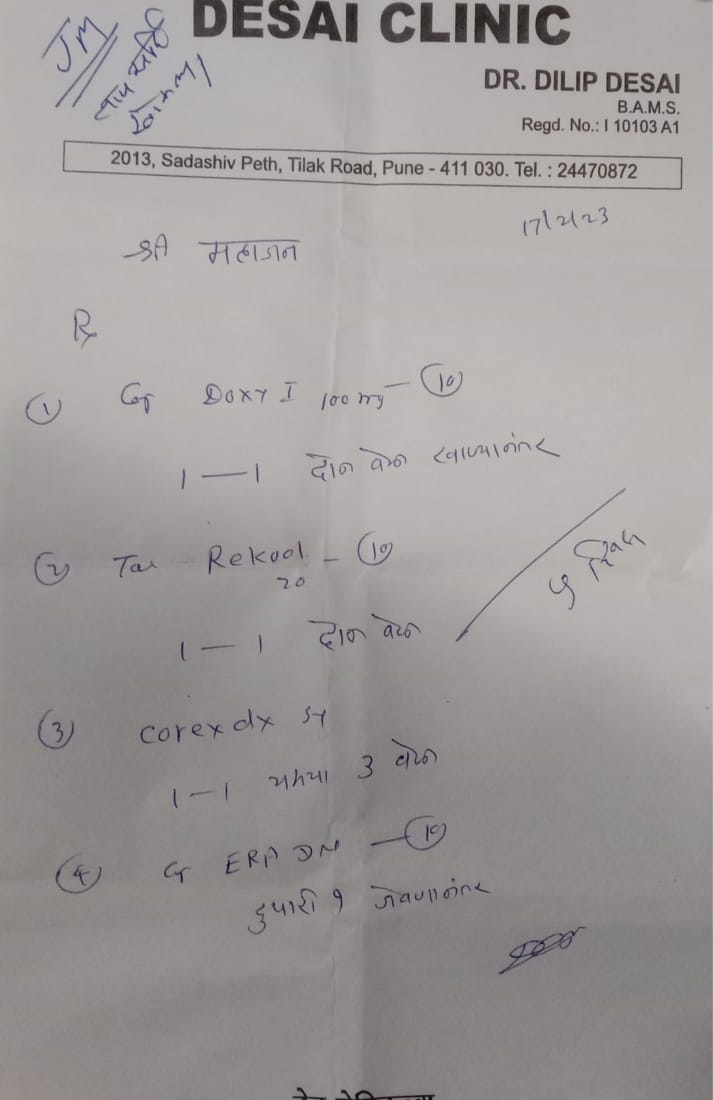 DESAI CLINIC
JM
DR. DILIP DESAI
B.A.M.S.
Regd. No.: I 10103 A1
2013, Sadashiv Peth, Tilak Road, Pune - 411 030. Tel. : 24470872
17/2/23
श्री महाजन
Rx
① Cap Doxy I 100 mg — ⑩
1 — 1 दोन वेळा खाण्यानंतर
② Tab Rekool — ⑩
20
1 — 1 दोन वेळा
५ दिवस
③ corex dx sy
1 — 1 चमचा 3 वेळा
④ ERA DM — ⑩
दुपारी १ जेवणानंतर